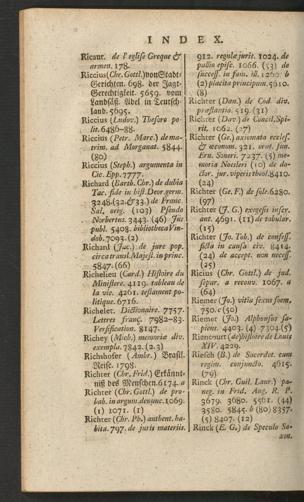 INDEX.
Ricaut. de l'eglise Greque &
armen. 178.
Riccius (Chr. Gottl.) von Stadt-
Gerichten. 698. der Jagt-
Gerechtigkeit. 5659. vom
Landsäß. Adel in Teutsch-
land. 5695.
Riccius (Ludov.) Thesoro po-
lit. 6486-88.
Riccius (Petr. Marc.) de ma-
trim. ad Morganat. 5844.
(80)
Riccius (Steph.) argumenta in
Cic. Epp. 7777.
Richard (Barth. Chr.) de dubia
Tac. fide in hist. Deor. germ.
3248 (32.&33.) de Franc.
Sal. orig. (103) Pseudo
Norbertus. 3443. (46) Jus
publ. 5408. bibliotheca Vin-
dob. 7093. (2)
Richard (Jac.) de jure pop.
circa transl. Majest. in princ.
5847. (66)
Richelieu (Card.) Histoire du
Ministere. 4119. tableau de
la vie. 4261. testament po-
litique. 6716.
Richelet. Dictionaire. 7757.
Lettres franç. 7982-83.
Versification. 8147.
Richey (Mich.) memoria div.
exemplo. 7842. (2.3)
Richshoffer (Ambr.) Brasil.
Reise. 1798.
Richter (Chr. Frid.) Erkännt-
niß des Menschen. 6174. a
Richter (Chr. Gottl.) de pro-
bab. in argum. denunc. 1069.
(1) 1071. (1)
Richter (Chr. Ph.) authent. ha-
bita. 797. de juris materiis.
912. regulæ jurit. 1024. de
pactis episc. 1066. (53) de
success. in fam. ill. 1200. b
(2) piacita principum. 5610.
(8)
Richter (Dan.) de Cod. div.
præstantia. 519. (31)
Richter (Dav.) de Concil. Spi-
rit. 1062. (27)
Richter (Ge.) axiomata eccles.
& œconom. 321. orat. fun.
Ern. Soneri. 7237. (5) me-
moria Noesleri (10) de do-
ctor. jur. viperis thool. 8410.
(24)
Richter (Ge. F.) de sole. 6280.
(97)
Richter (J. G.) exegesis infer.
ant. 4691. (11) de tabular.
(15)
Richter (Jo. Tob.) de confess.
ficta in causa civ. 8414.
(24) de accept. non necess.
(25)
Ricius (Chr. Gottl.) de jud.
super. a recon. 1067. a
(64)
Riemer (Jo.) vitia sexus foem.
750. c (50)
Riemer (Jo.) Alphonsus sa-
piens. 4403. (4) 7304. (5)
Riencourt (de) histoire de Louis
XIV. 4229.
Riesch (B.) de Sacerdot. cum
regim. conjuncto. 4615.
(79)
Rinck (Chr. Guil. Laur.) pa-
neg. in Frid. Aug. R. P.
3679. 3680. 5561. (44)
3580. 5845. b (80) 8357.
(5) 8407. (12)
Rinck (E. G.) de Speculo Sa-
xon.